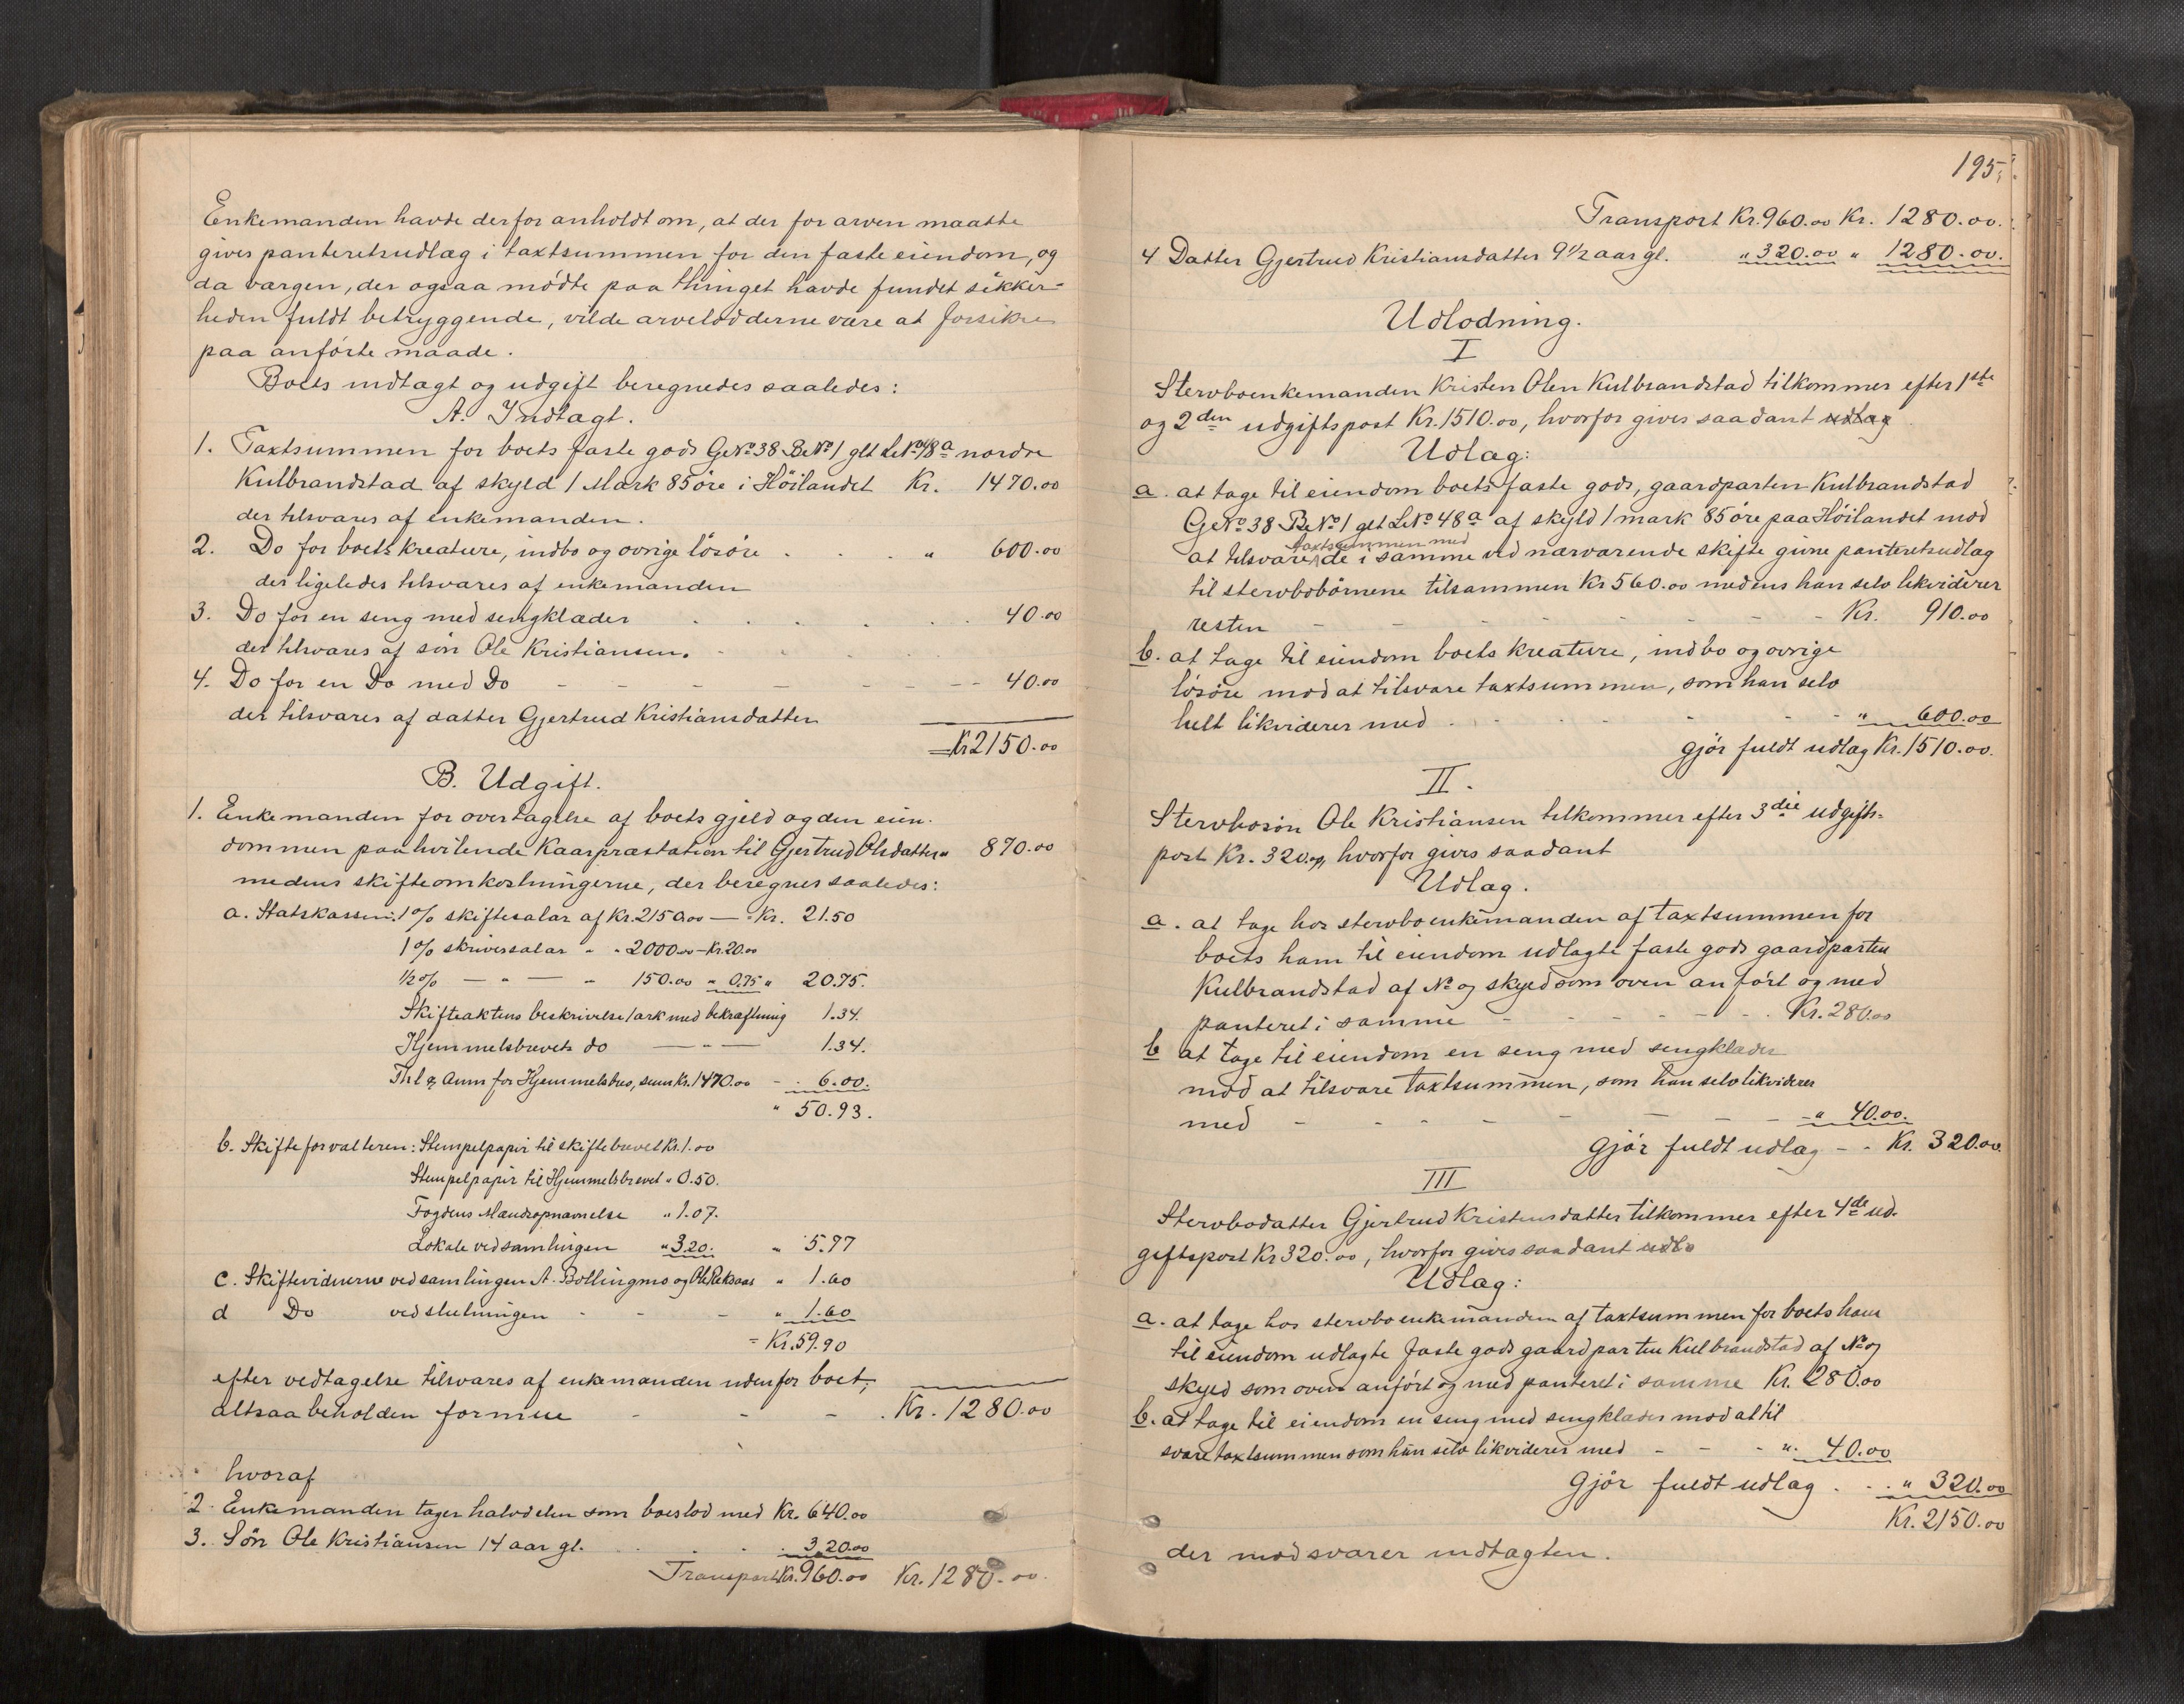 Enkemanden havde derfor anholdt om, at der for arven maatte
gives panteretsudlæg i taxtsummen for den faste eiendom, og
da værgen, der ogsaa mødte paa thinget havde fundet sikker-
heden fuldt betryggende, vilde arvelodderne være at forsikre
paa anførte maade.
Boets indtægt og udgift beregnedes saaledes:
A. Indtægt.
1. Taxtsummen for boets faste gods GNo 38 BNo 1 glt LNo 48a nordre
Kulbrandstad af skyld 1 Mark 85 öre i Höilandet Kr. 1470.00
der tilsvares af enkemanden.
2. Do for boets kreature, indbo og övrige lösöre . . . " 600.00
der ligeledes tilsvares af enkemanden
3. Do for en seng med sengklæder . . . . . . 40.00
der tilsvares af sön Ole Kristiansen.
4. Do for en Do med Do - - - - - - - - 40.00
der tilsvares af datter Gjertrud Kristiansdatter
Kr 2150.00
B. Udgift.
1. Enkemanden for overtagelse af boets gjeld og den eien-
dommen paahvilende Kaarpræstation til Gjertrud Olsdatter " 870.00
medens skifteomkostningerne, der beregnes saaledes:
a. Statskassen: 1% skiftesalær af Kr. 2150.00 — Kr. 21.50
1% skriversalær " " 2000.00 - Kr. 20.00
1/2% — " — " 150.00 " 0.75 " 20.75.
Skifteaktens beskrivelse 1 ark med bekræftning 1.34.
Hjemmelsbrevets do — " — 1.34.
Thl & Ann for Hjemmelsbrev, sum Kr. 1470.00 - . 6.00.
" 50.93.
b. Skifteforvalteren: Stempelpapir til skiftebrevet Kr. 1.00
Stempelpapir til Hjemmelsbrevet " 0.50.
Fogdens Mændsopnævnelse " 1.07.
Lokale ved samlingen " 3.20. " 5.77
c. Skiftevidnerne ved samlingen A. Bollingmo og " 1.60
d Do ved slutningen - - - " 1.60
= Kr. 59.90
efter vedtagelse tilsvares af enkemanden udenfor boet,
altsaa beholden formue - - - . Kr. 1280.00
hvoraf
2. Enkemanden tager halvdelen som boeslod med Kr. 640.00
3. Sön Ole Kristiansen 14 aar gl. . . . 320.00
Transport Kr. 960.00 Kr. 1280.00.
195.
Transport Kr. 960.00 Kr. 1280.00.
4 Datter Gjertrud Kristiansdatter 9 1/2 aar gl. " 320.00 " 1280.00.
Udlodning.
I
Stervboenkemanden Kristen Olsen Kulbrandstad tilkommer efter 1ste
og 2den udgiftspost Kr. 1510.00, hvorfor gives saadant udlæg
Udlæg:
a. at tage til eiendom boets faste gods, gaardparten Kulbrandstad
GNo 38 BNo 1 glt LNo 48a af skyld 1 mark 85 öre paa Höilandet mod
taxtsummen med
at tilsvare de i samme ved nærværende skifte givne panteretsudlæg
til stervbobörnene tilsammen Kr 560.00 medens han selv likviderer
resten - - - - - - - - Kr. 910.00
b. at tage til eiendom boets kreature, indbo og övrige
lösöre mod at tilsvare taxtsummen, som han selv
helt likviderer med . . . . . " 600.00
gjör fuldt udlæg Kr. 1510.00.
II.
Stervbosön Ole Kristiansen tilkommer efter 3die udgifts-
post Kr. 320.00, hvorfor gives saadant
Udlæg.
a. at tage hos stervboenkemanden af taxtsummen for
boets ham til eiendom udlagte faste gods gaardparten
Kulbrandstad af No og skyld som oven anfört og med
panteret i samme - - - - - - Kr. 280.00
b at tage til eiendom en seng med sengklæder
mod at tilsvare taxtsummen, som han selv likviderer
med - - - - - - - - " 40.00.
gjör fuldt udlæg - - Kr. 320.00.
III
Stervbodatter Gjertrud Kristensdatter tilkommer efter 4de ud-
giftspost Kr 320.00, hvorfor gives saadant
Udlæg:
a. at tage hos stervboenkemanden af taxtsummen for boets ham
til eiendom udlagte faste gods gaardparten Kulbrandstad af No og
skyld som oven anfört og med panteret i samme Kr. 280.00
b. at tage til eiendom en seng med sengklæder mod at til
svare taxtsummen som hun selv likviderer med - - - ". 40.00
gjör fuldt udlæg . . . " 320.00
Kr. 2150.00
der modsvarer indtægten.